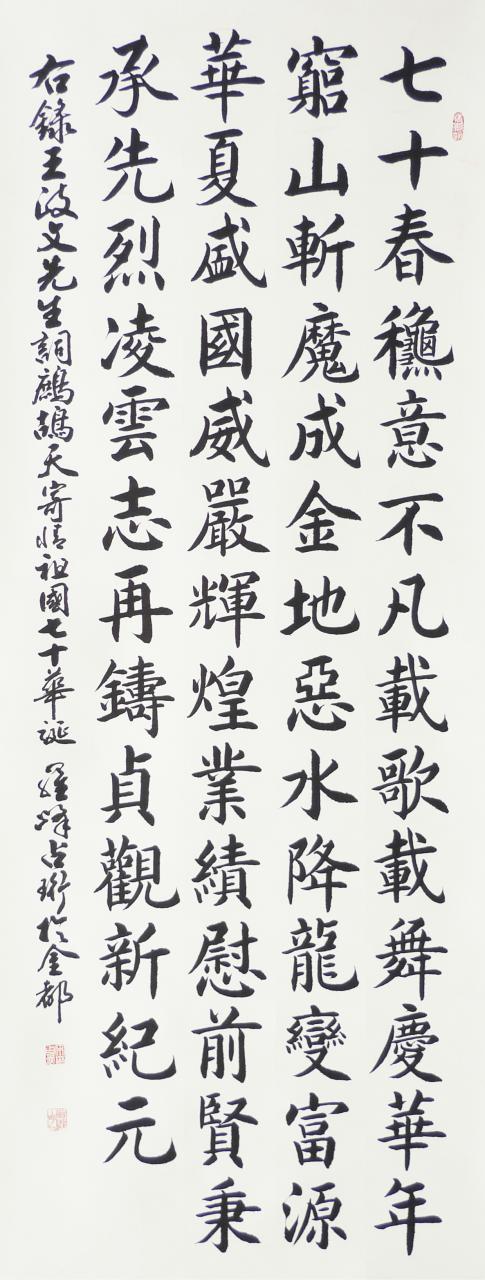 七十春龝意不凡載歌載舞慶華年
窮山斬魔成金地惡水降龍變富源
華夏盛國威嚴輝煌業績慰前賢秉
承先烈凌雲志再鑄貞觀新紀元
右錄王波文先生詞鷓鴣天寄情祖國七十華誕 羅峰占珩於金都